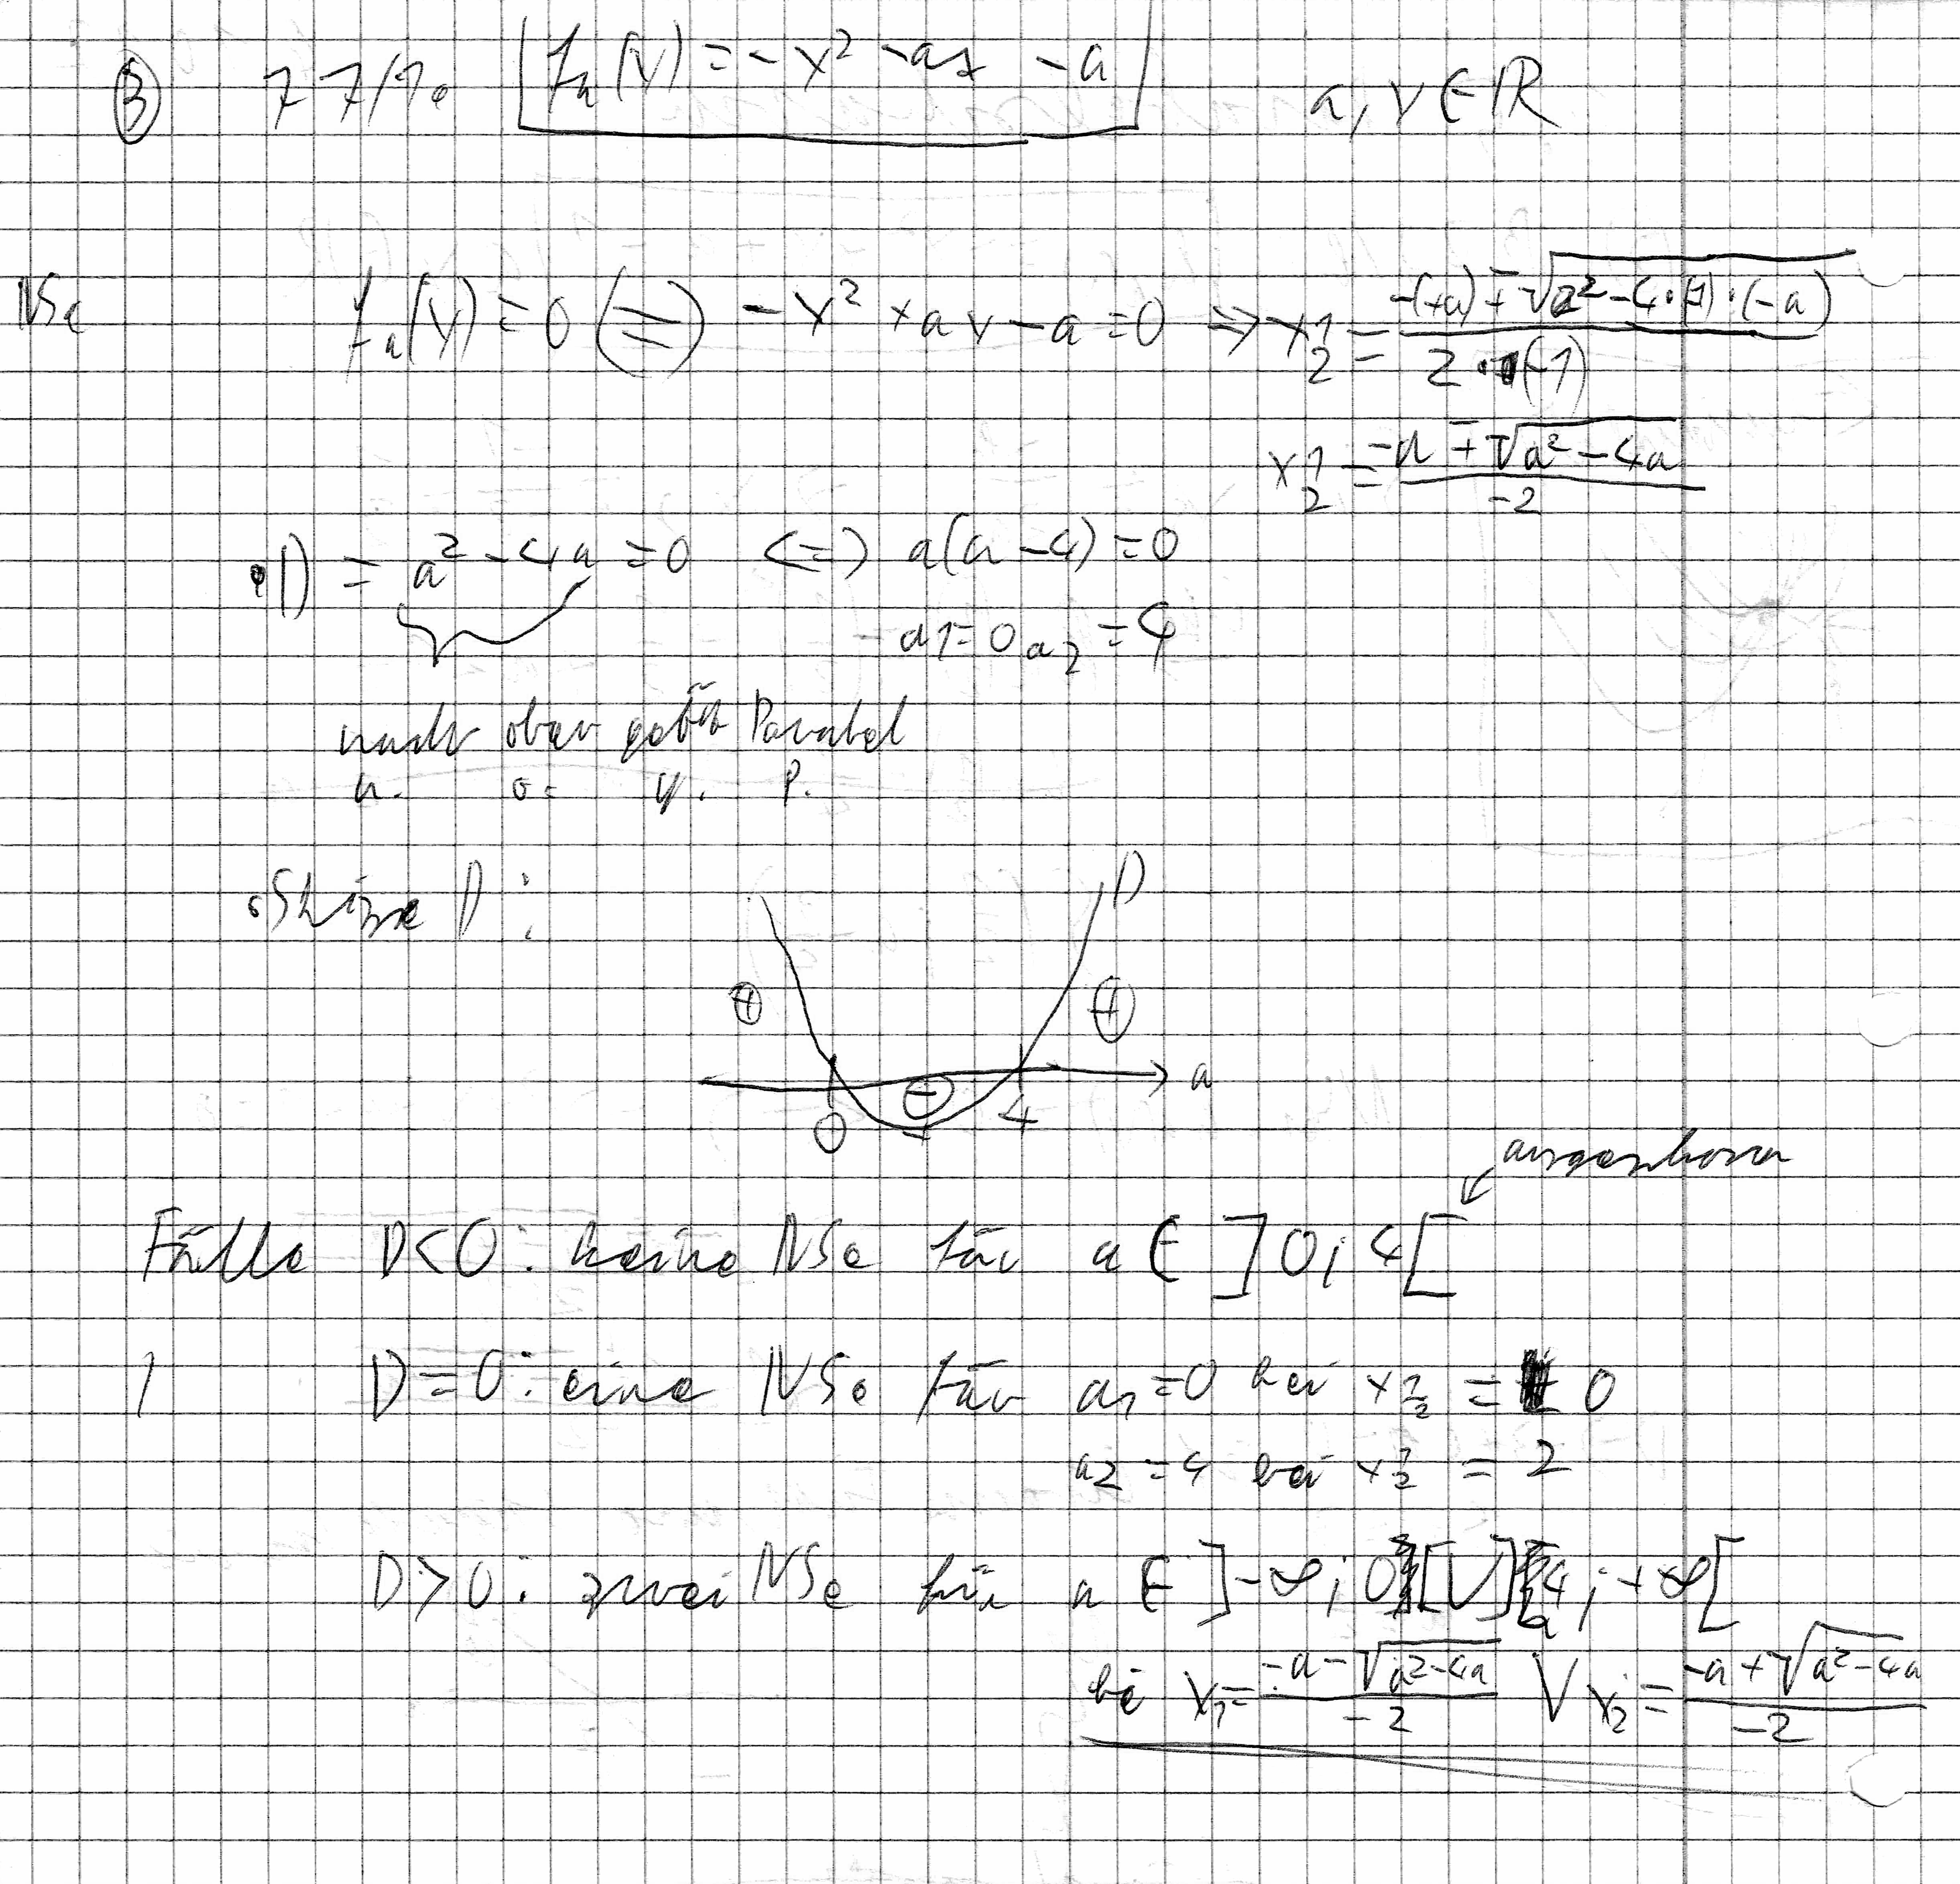 ③ 77/1. fₐ(x) = -x² -ax -a a, x ∈ ℝ
NSe fₐ(x) = 0 (=) -x² +ax -a = 0 => x1/2 = (-(+a) ∓ √(a² -4·(-1)·(-a))) / (2·(-1))
x1/2 = (-a ∓ √(a² -4a)) / -2
• D = a² -4a = 0 <=> a(a-4) = 0
a1 = 0 a2 = 4
nach oben geöffn Parabel
n. o. g. P.
• Skizze D:
D
⊕ ⊕
⊖ a
0 4
ausgeschlossen
Fälle D<0: keine NSe für a ∈ ]0; 4[
D=0: eine NSe für a1 = 0 bei x1/2 = 0
a2 = 4 bei x1/2 = 2
D>0: zwei NSe für a ∈ ]-∞; 0[ U ]4; +∞[
bei x1 = (-a - √(a² -4a)) / -2 V x2 = (-a + √(a² -4a)) / -2